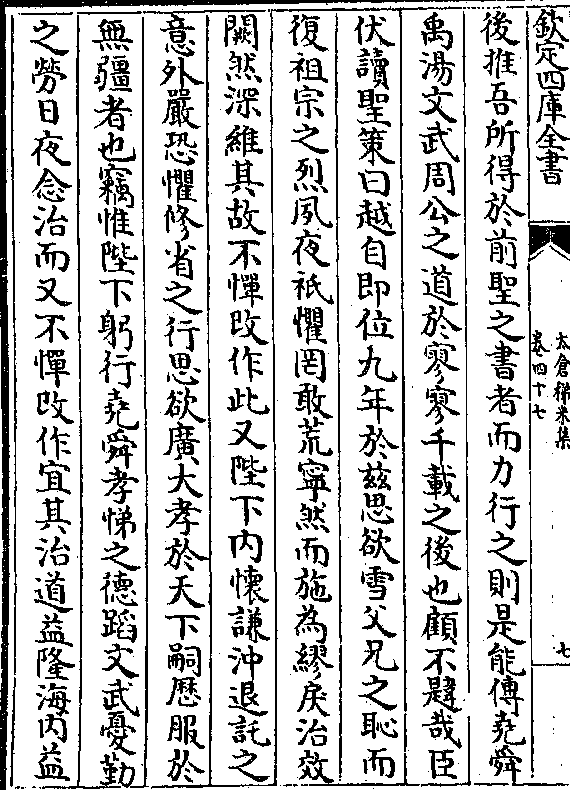 欽定四庫全書
太倉稊米集
卷四十七
七
後推吾所得於前聖之書者而力行之則是能傳堯舜
禹湯文武周公之道於寥寥千載之後也顧不韙哉臣
伏讀聖策曰越自即位九年於兹思欲雪父兄之恥而
復祖宗之烈夙夜祗懼罔敢荒寧然而施為繆戾治效
闕然深維其故不憚改作此又陛下内懷謙沖退託之
意外嚴恐懼修省之行思欲廣大孝於天下嗣歴服於
無疆者也竊惟陛下躬行堯舜孝悌之德蹈文武憂勤
之勞日夜念治而又不憚改作宜其治道益隆海内益